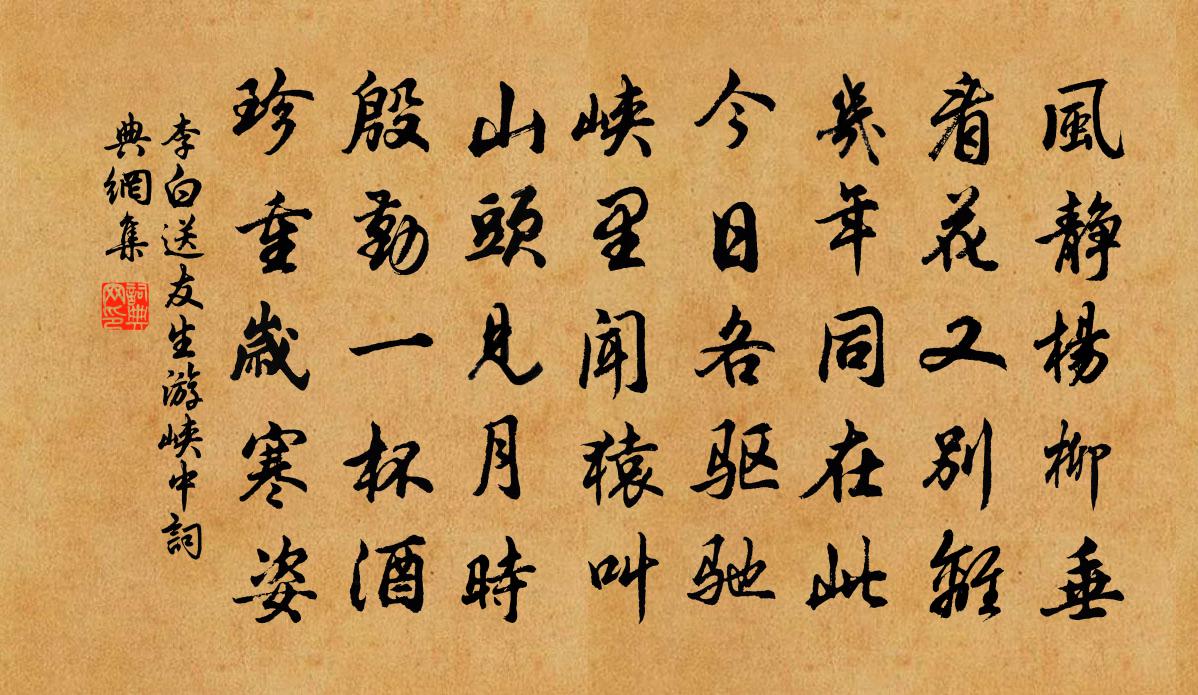 風靜楊柳垂
看花又別離
幾年同在此
今日各驱驰
峽里聞猿叫
山頭見月時
殷勤一杯酒
珍重歲寒姿
李白送友生游峽中詞
典網集
詞典網印